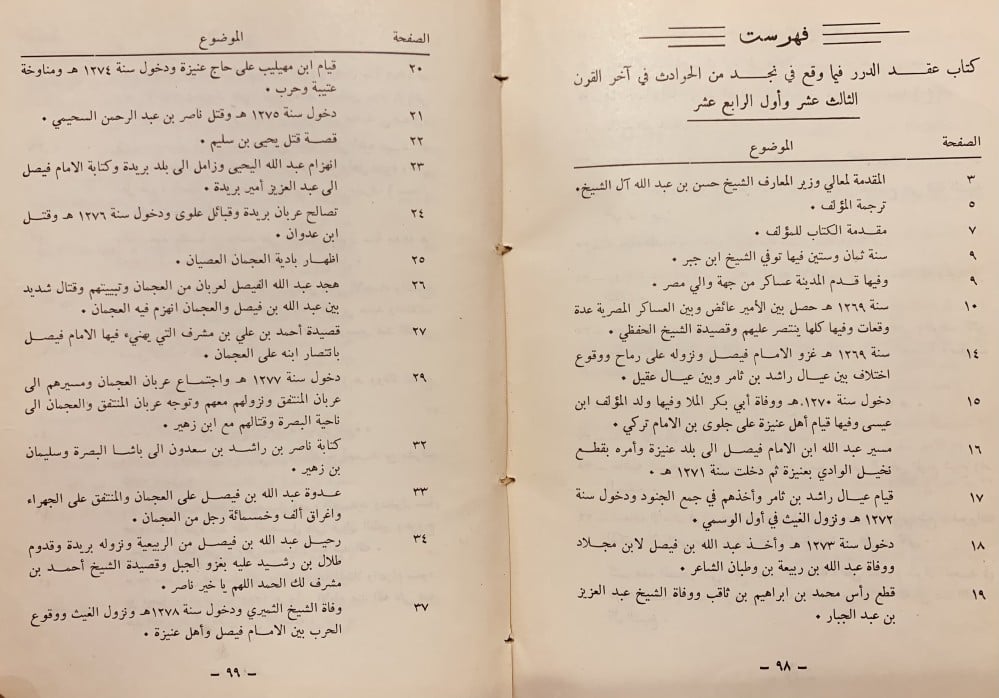 فهرست
كتاب عقد الدرر فيما وقع في نجد من الحوادث في آخر القرن
الثالث عشر وأول الرابع عشر
الصفحة الموضوع
٣ المقدمة لمعالي وزير المعارف الشيخ حسن بن عبد الله آل الشيخ.
٥ ترجمة المؤلف .
٧ مقدمة الكتاب للمؤلف .
٩ سنة ثمان وستين فيها توفي الشيخ ابن جبر .
٩ وفيها قدم المدينة عساكر من جهة والي مصر .
١٠ سنة ١٢٦٩ هـ حصل بين الأمير عائض وبين العساكر المصرية عدة
وقعات وفيها كلها ينتصر عليهم وقصيدة الشيخ الحفظي .
١٤ سنة ١٢٦٩ هـ غزو الامام فيصل ونزوله على رماح ووقوع
اختلاف بين عيال راشد بن ثامر وبين عيال عقيل .
١٥ دخول سنة ١٢٧٠هـ ووفاة أبي بكر الملا وفيها ولد المؤلف ابن
عيسى وفيها قيام أهل عنيزة على جلوى بن الامام تركي .
١٦ مسير عبد الله ابن الامام فيصل الى بلد عنيزة وأمره بقطع
نخيل الوادي بعنيزة ثم دخلت سنة ١٢٧١ هـ .
١٧ قيام عيال راشد بن ثامر وأخذهم في جمع الجنود ودخول سنة
١٢٧٢ هـ ونزول الغيث في أول الوسمي .
١٨ دخول سنة ١٢٧٣ هـ وأخذ عبد الله بن فيصل لابن مجلاد
ووفاة عبد الله بن ربيعة بن وطبان الشاعر .
١٩ قطع رأس محمد بن ابراهيم بن ثاقب ووفاة الشيخ عبد العزيز
بن عبد الجبار .
– ٩٨ –
الصفحة الموضوع
٢٠ قيام ابن مهيليب على حاج عنيزة ودخول سنة ١٢٧٤ هـ ومناوخة
عتيبة وحرب .
٢١ دخول سنة ١٢٧٥ هـ وقتل ناصر بن عبد الرحمن السحيمي .
٢٢ قصة قتل يحيى بن سليم .
٢٣ انهزام عبد الله اليحيى وزامل الى بلد بريدة وكتابة الامام فيصل
الى عبد العزيز أمير بريدة .
٢٤ تصالح عربان بريدة وقبائل علوى ودخول سنة ١٢٧٦ هـ وقتل
ابن عدوان .
٢٥ اظهار بادية العجمان العصيان .
٢٦ هجد عبد الله الفيصل لعربان من العجمان وتبييتهم وقتال شديد
بين عبد الله بن فيصل والعجمان انهزم فيه العجمان .
٢٧ قصيدة أحمد بن علي بن مشرف التي يهنيء فيها الامام فيصل
بانتصار ابنه على العجمان .
٢٩ دخول سنة ١٢٧٧ هـ واجتماع عربان العجمان ومسيرهم الى
عربان المنتفق ونزولهم معهم وتوجه عربان المنتفق والعجمان الى
ناحية البصرة وقتالهم مع ابن زهير .
٣٢ كتابة ناصر بن راشد بن سعدون الى باشا البصرة وسليمان
بن زهير .
٣٣ عدوة عبد الله بن فيصل على العجمان والمنتفق على الجهراء
واغراق ألف وخمسمائة رجل من العجمان .
٣٤ رحيل عبد الله بن فيصل من الربيعية ونزوله بريدة وقدوم
طلال بن رشيد عليه بغزو الجبل وقصيدة الشيخ أحمد بن
مشرف لك الحمد اللهم يا خير ناصر .
٣٧ وفاة الشيخ الثميري ودخول سنة ١٢٧٨هـ ونزول الغيث ووقوع
الحرب بين الامام فيصل وأهل عنيزة .
– ٩٩ –